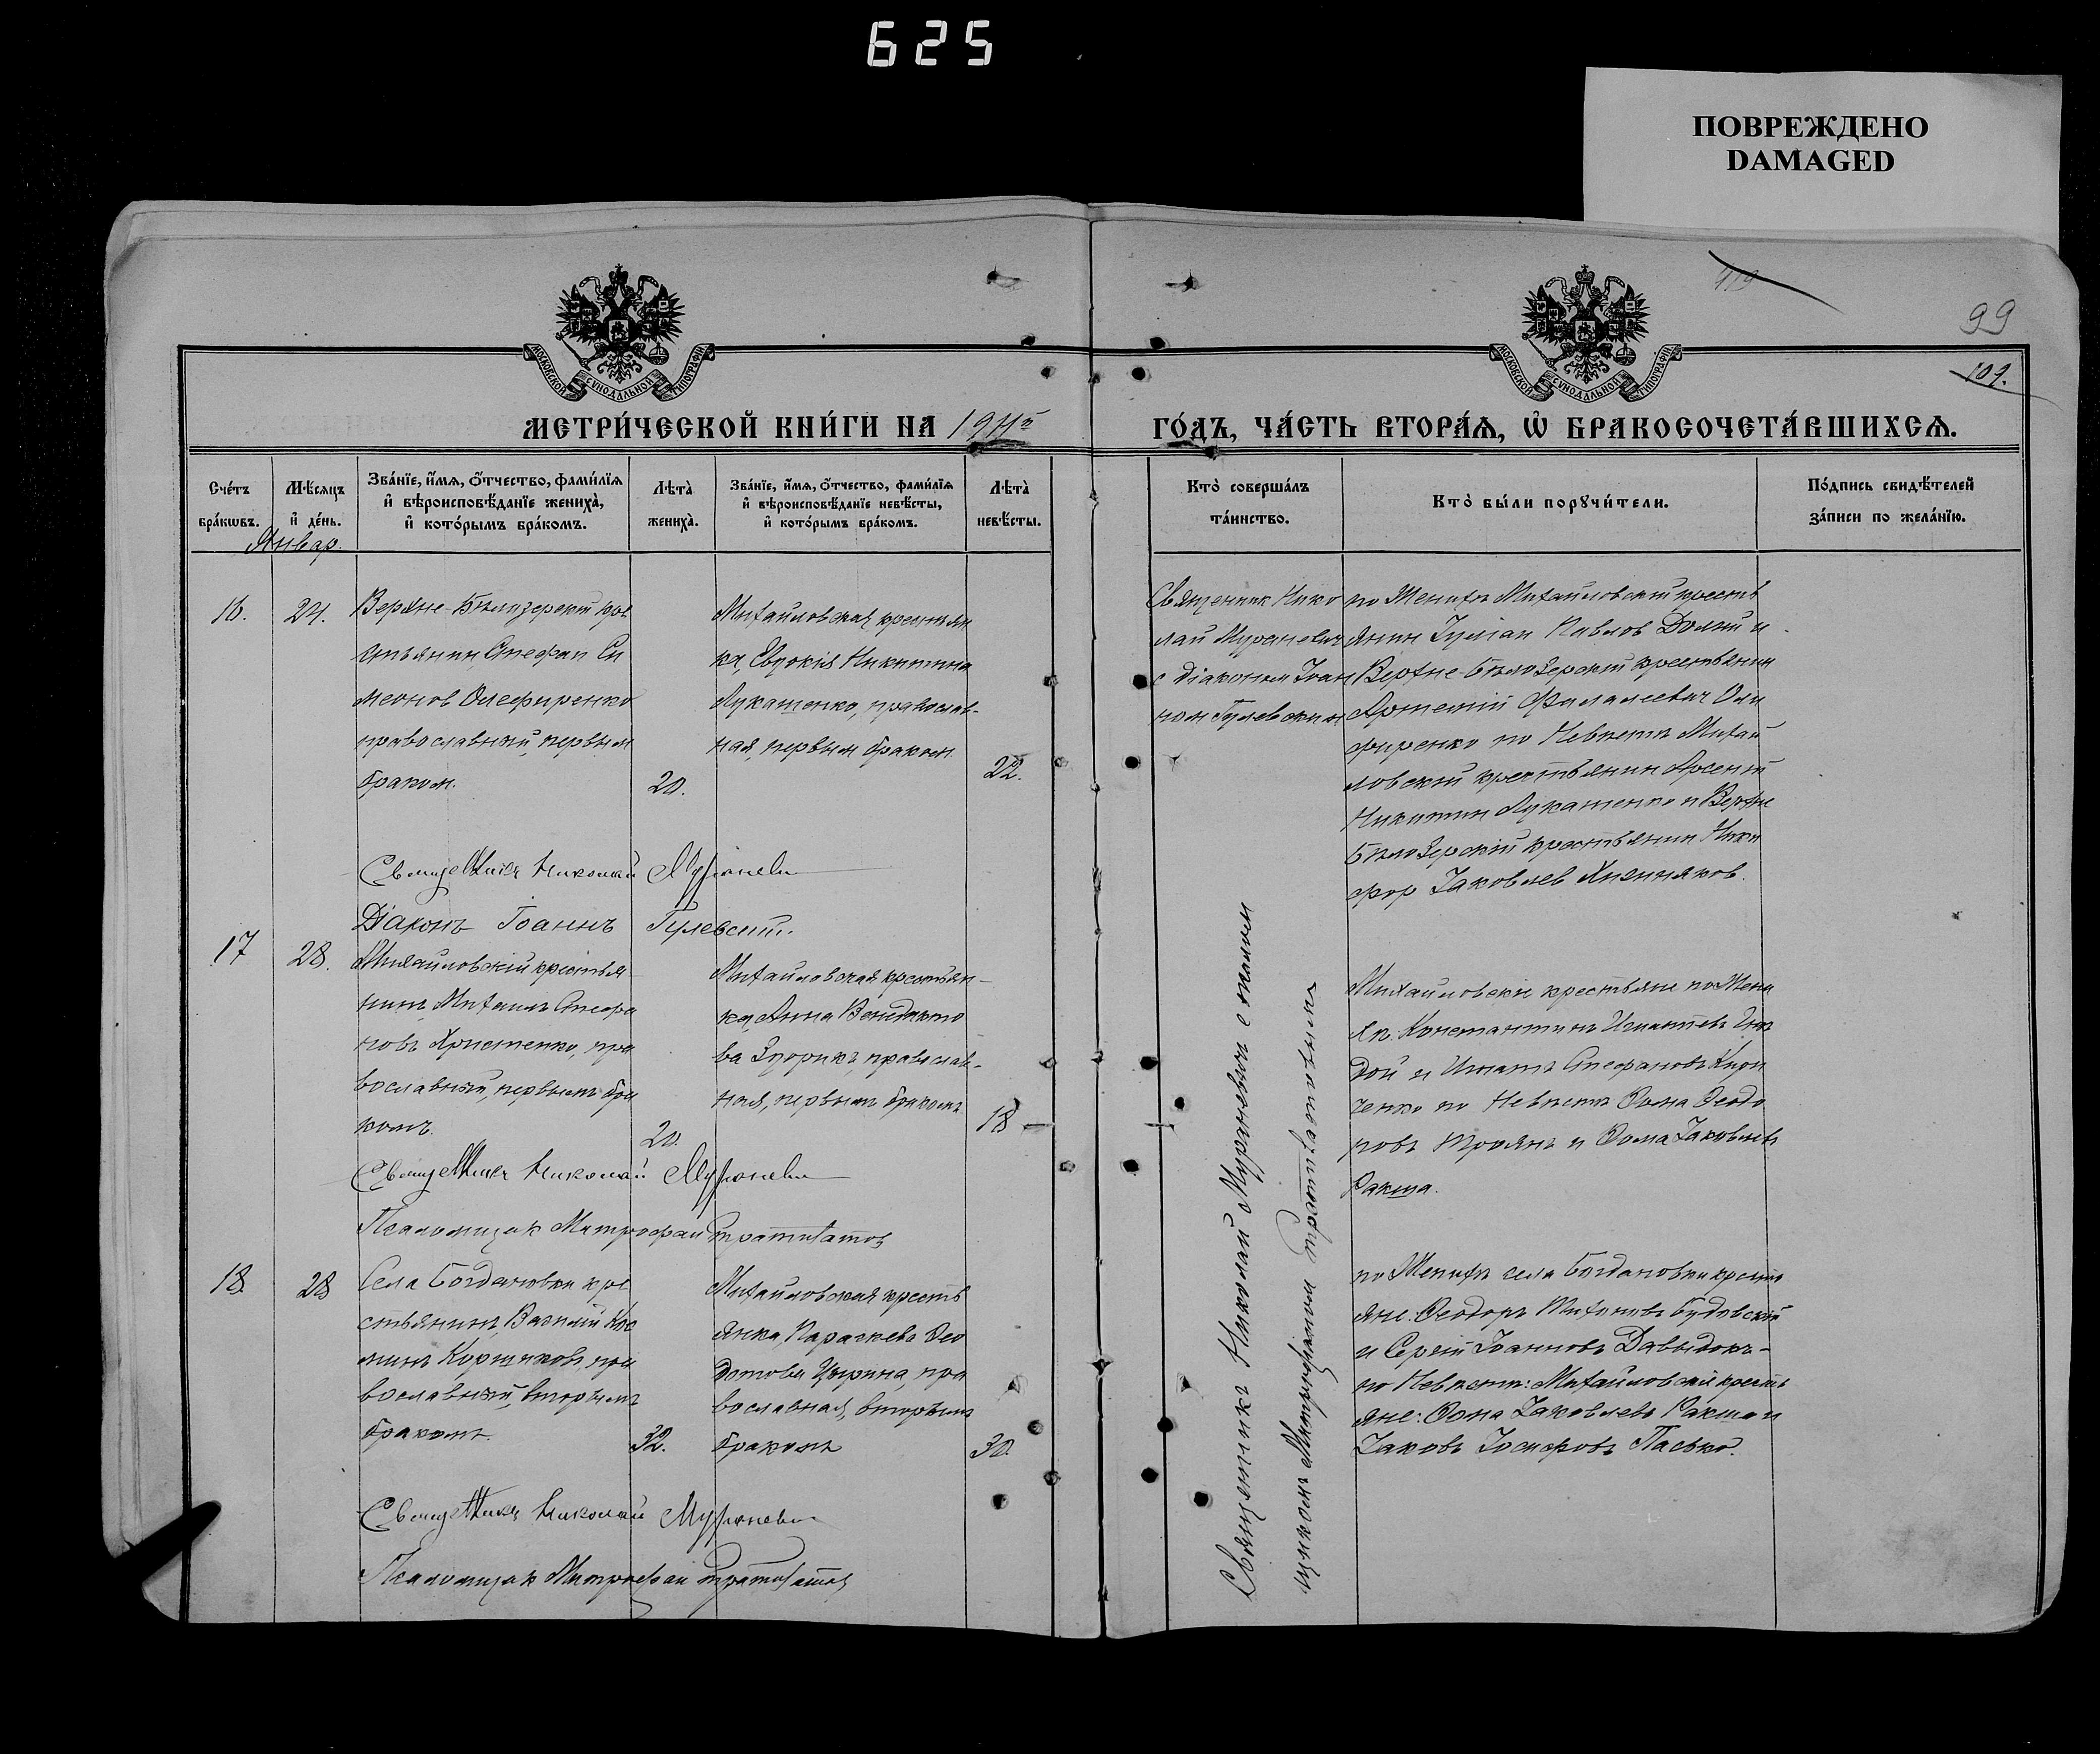 625
ПОВРЕЖДЕНО
DAMAGED
99
МОСКОВСКОЙ СУНОДАЛЬНОЙ ТИПОГРАФІИ
МОСКОВСКОЙ СУНОДАЛЬНОЙ ТИПОГРАФІИ
МЕТРИ́ЧЕСКОЙ КНИ́ГИ НА 1911й
ГО́ДЪ, ЧА́СТЬ ВТОРА́Я, Ѡ БРАКОСОЧЕТА́ВШИХСЯ.
Сче́тъ бра́кѡвъ.
Мѣ́сяцъ и де́нь.
Зва́нїе, и́мя, о́тчество, фами́лїя
и вѣроисповѣ́данїе жениха̀,
и кото́рымъ бра́комъ.
Лѣта̀ жениха̀.
Зва́нїе, и́мя, о́тчество, фами́лїя
и вѣроисповѣ́данїе невѣ́сты,
и кото́рымъ бра́комъ.
Лѣта̀ невѣ́сты.
Кто̀ соверша́лъ
та́инство.
Кто̀ бы́ли порꙋчи́тели.
По́дпись свидѣ́телей
за́писи по жела́нїю.
Январ.
16.
24.
Верхне-Бѣлозерскій кре
стьянин Стефан Си
меонов Олефиренко
православный, первым
браком.
20.
Михайловская крестьян
ка, Евдокія Никитина
Лукашенко, православ-
ная, первым браком
22.
Священник Нико
лай Мураневич
с діаконом Іоан
ном Гулевским
по Женихѣ Михайловскій кресть
янин Іуліан Павлов Долгій и
Верхне-Бѣлозерскій крестьянин
Артемій Оли
фиренко по Невѣстѣ Михай
ловскій крестьянин Арсеній
Никитин Лукашенко и Верхне
Бѣлозерскій крестьянин Ники
фор Іаковлев
Священникъ Николай Мураневич
Діаконъ Іоаннъ Гулевскій.
17
28.
Михайловскій крестья
нинъ, Михаилъ Стефа
новъ Христенко, пра
вославный, первымъ бра
комъ.
20.
Михайловская крестьян-
ка, Анна Венедикто
ва православ-
ная, первымъ бракомъ
18
Михайловскіе крестьяне по Жени
хѣ. Константинъ Игнатіевъ Гна
дой и Игнатъ Стефановъ
ченко по Невѣстѣ Ѳома Ѳеодо
ровъ Троянъ и Ѳома Іаковлевъ
Ракша.
Священникъ Николай Мураневич
Псаломщик Митрофан
18.
28
Села Богдановки кре
стьянинъ, Василій Кос
минъ Коршиковъ, пра
вославный, вторымъ
бракомъ.
32.
Михайловская кресть
янка, Параскева Ѳео
дотова пра
вославная, вторымъ
бракомъ
30.
по Женихѣ села Богдановки кресть
яне: Ѳеодоръ Титовъ Будовскій
и Сергій Іоанновъ Давыдокъ-
по Невѣстѣ: Михайловскіе кресть
яне: Ѳома Іаковлевъ Ракша и
Іаковъ Іосифовъ Пасько.
Священникъ Николай Мураневич
Псаломщик Митрофан
Священникъ Николай Мураневич с псалом
щиком Митрофаном